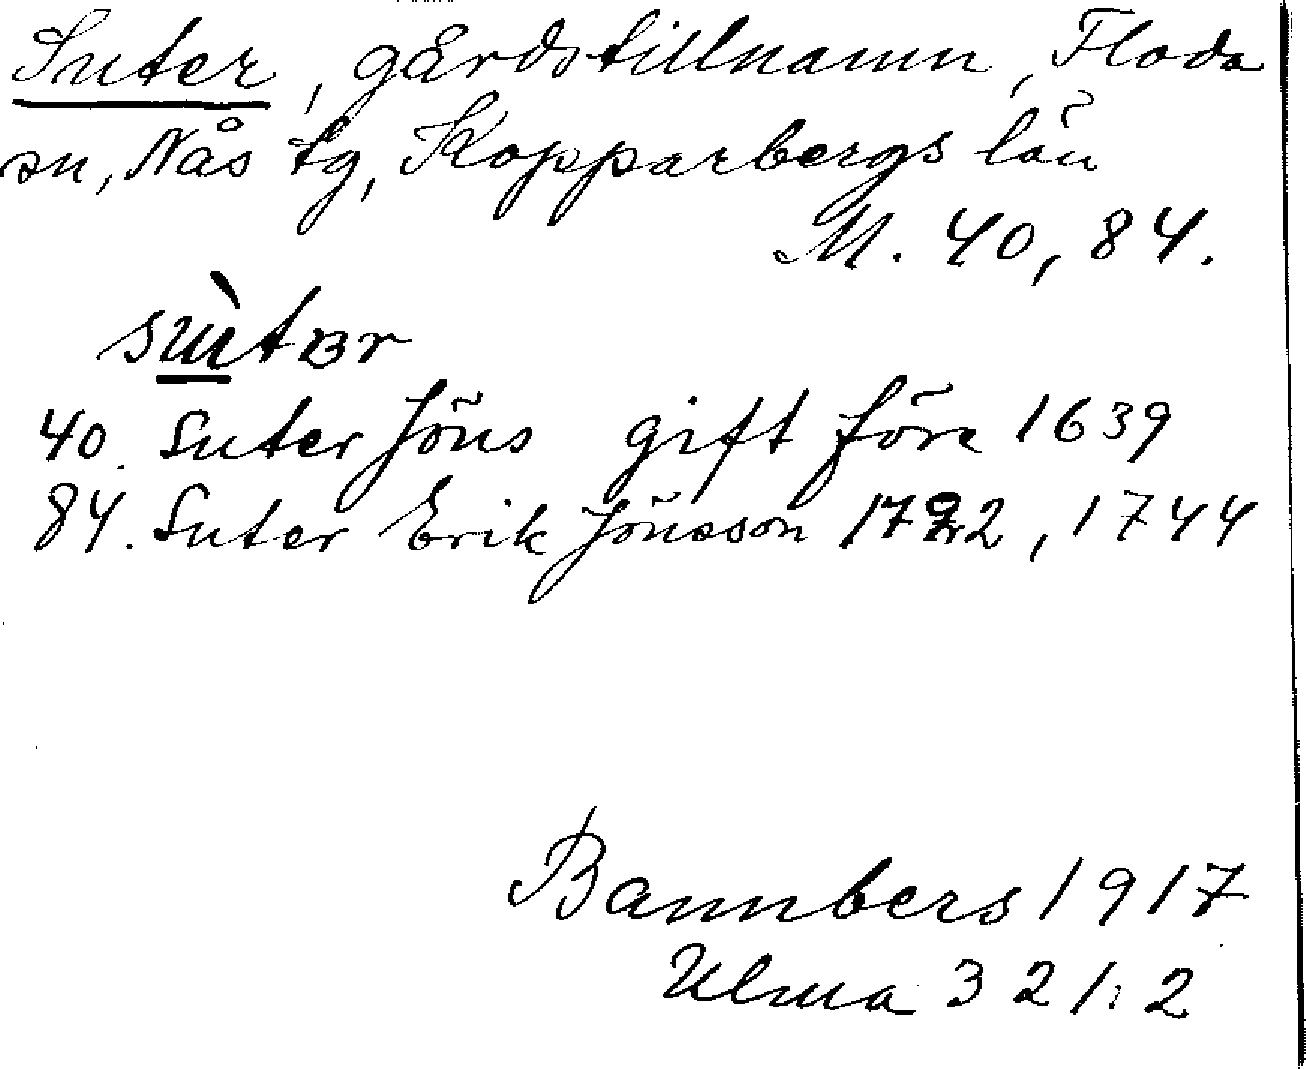 Suter, gårdstillnamn, Floda
sn, Nås tg, Kopparbergs län
M. 40, 84.
40. Suter Jöns gift före 1639
84. Suter Erik Jönsson 1722, 1744
Bannbers 1917
Ulma 321:2